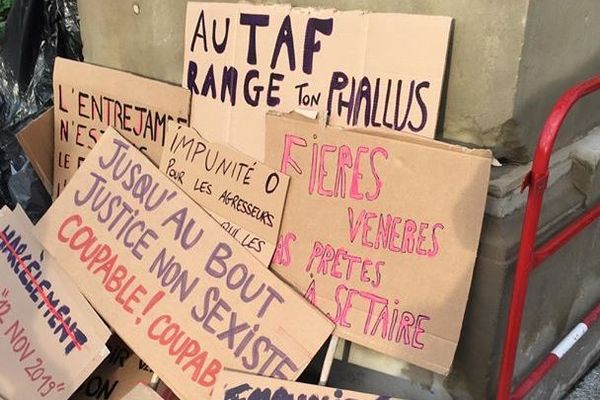 AU TAF
RANGE TON PHALLUS
L'ENTREJAMBE
N'EST
IMPUNITÉ O
POUR LES AGRESSEURS
QUI LES
FIERES
VENERES
PAS PRÊTES
A SE TAIRE
JUSQU'AU BOUT
JUSTICE NON SEXISTE
COUPABLE! COUPAB
HARCÈLEMENT
"12 NOV 2019"